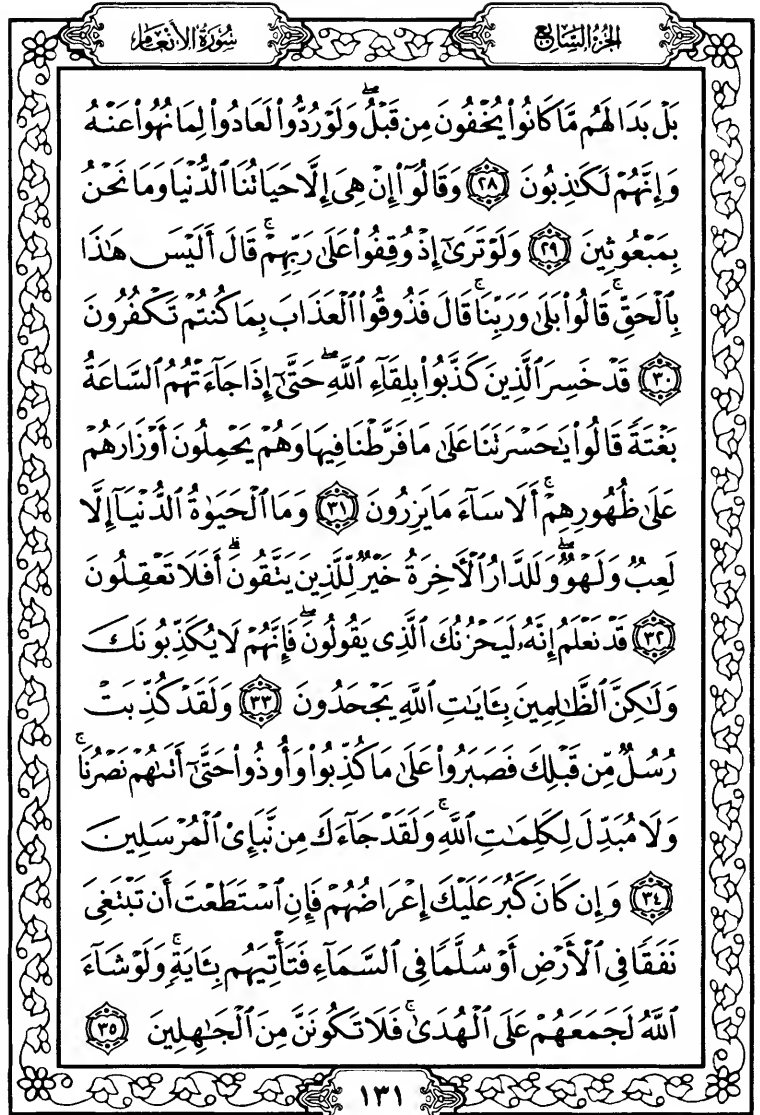 الجزء السابع
سورة الأنعام
بَلۡ بَدَا لَهُم مَّا كَانُواْ يُخۡفُونَ مِن قَبۡلُۖ وَلَوۡ رُدُّواْ لَعَادُواْ لِمَا نُهُواْ عَنۡهُ
وَإِنَّهُمۡ لَكَٰذِبُونَ ٢٨ وَقَالُوٓاْ إِنۡ هِيَ إِلَّا حَيَاتُنَا ٱلدُّنۡيَا وَمَا نَحۡنُ
بِمَبۡعُوثِينَ ٢٩ وَلَوۡ تَرَىٰٓ إِذۡ وُقِفُواْ عَلَىٰ رَبِّهِمۡۚ قَالَ أَلَيۡسَ هَٰذَا
بِٱلۡحَقِّۚ قَالُواْ بَلَىٰ وَرَبِّنَاۚ قَالَ فَذُوقُواْ ٱلۡعَذَابَ بِمَا كُنتُمۡ تَكۡفُرُونَ
٣٠ قَدۡ خَسِرَ ٱلَّذِينَ كَذَّبُواْ بِلِقَآءِ ٱللَّهِۖ حَتَّىٰٓ إِذَا جَآءَتۡهُمُ ٱلسَّاعَةُ
بَغۡتَةٗ قَالُواْ يَٰحَسۡرَتَنَا عَلَىٰ مَا فَرَّطۡنَا فِيهَا وَهُمۡ يَحۡمِلُونَ أَوۡزَارَهُمۡ
عَلَىٰ ظُهُورِهِمۡۚ أَلَا سَآءَ مَا يَزِرُونَ ٣١ وَمَا ٱلۡحَيَوٰةُ ٱلدُّنۡيَآ إِلَّا
لَعِبٞ وَلَهۡوٞۖ وَلَلدَّارُ ٱلۡأٓخِرَةُ خَيۡرٞ لِّلَّذِينَ يَتَّقُونَۚ أَفَلَا تَعۡقِلُونَ
٣٢ قَدۡ نَعۡلَمُ إِنَّهُۥ لَيَحۡزُنُكَ ٱلَّذِي يَقُولُونَۖ فَإِنَّهُمۡ لَا يُكَذِّبُونَكَ
وَلَٰكِنَّ ٱلظَّٰلِمِينَ بِـَٔايَٰتِ ٱللَّهِ يَجۡحَدُونَ ٣٣ وَلَقَدۡ كُذِّبَتۡ
رُسُلٞ مِّن قَبۡلِكَ فَصَبَرُواْ عَلَىٰ مَا كُذِّبُواْ وَأُوذُواْ حَتَّىٰٓ أَتَىٰهُمۡ نَصۡرُنَاۚ
وَلَا مُبَدِّلَ لِكَلِمَٰتِ ٱللَّهِۚ وَلَقَدۡ جَآءَكَ مِن نَّبَإِيْ ٱلۡمُرۡسَلِينَ
٣٤ وَإِن كَانَ كَبُرَ عَلَيۡكَ إِعۡرَاضُهُمۡ فَإِنِ ٱسۡتَطَعۡتَ أَن تَبۡتَغِيَ
نَفَقٗا فِي ٱلۡأَرۡضِ أَوۡ سُلَّمٗا فِي ٱلسَّمَآءِ فَتَأۡتِيَهُم بِـَٔايَةٖۚ وَلَوۡ شَآءَ
ٱللَّهُ لَجَمَعَهُمۡ عَلَى ٱلۡهُدَىٰۚ فَلَا تَكُونَنَّ مِنَ ٱلۡجَٰهِلِينَ ٣٥
١٣١